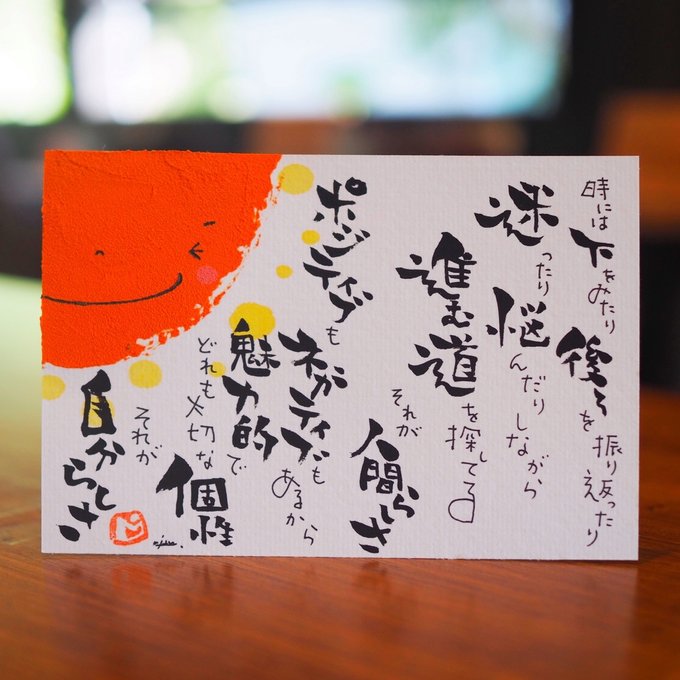 時には下をみたり
後ろを振り返ったり
迷ったり悩んだりしながら
進む道を探してる
それが
人間らしさ
ポジティブも
ネガティブもあるから
魅力的で
どれも大切な
個性
それが
自分らしさ